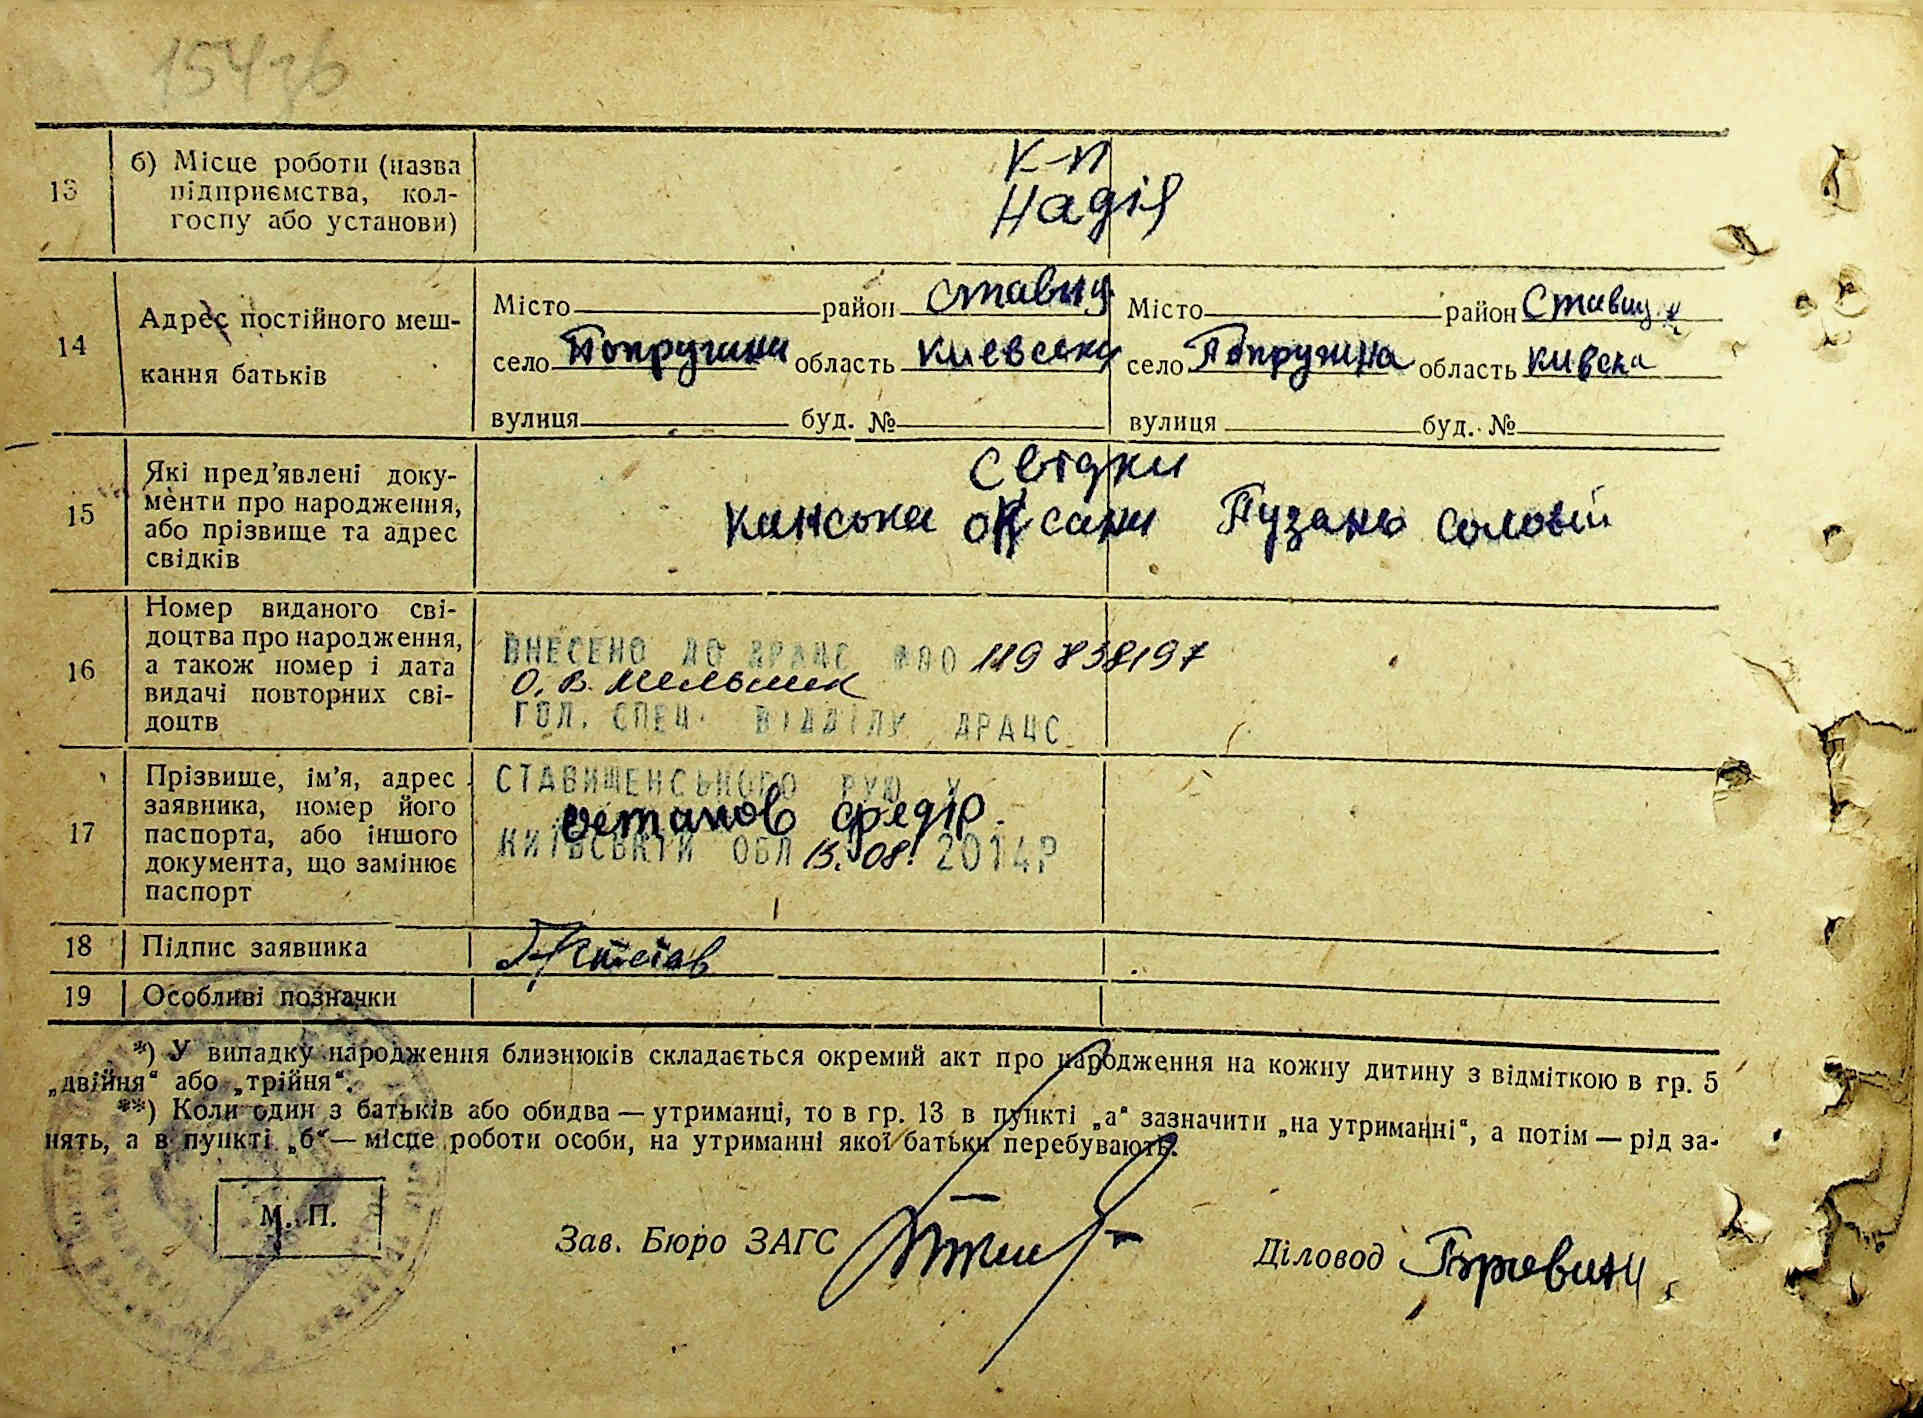 154зв
13
б) Місце роботи (назва
підприємства, кол-
госпу або установи)
К-п
Надія
14
Адрес постійного меш-
кання батьків
Місто район Ставищ
село Попружни область Киевска
вулиця буд. №
Місто район Ставищ
село Попружна область Кивска
вулиця буд. №
15
Які пред’явлені доку-
менти про народження,
або прізвище та адрес
свідків
Свідки
Канська Оксани Пузань Соловій
16
Номер виданого сві-
доцтва про народження,
а також номер і дата
видачі повторних сві-
доцтв
ВНЕСЕНО ДО ДРАЦС 119838197
О. В. Мельник
ГОЛ. СПЕЦ. ВІДДІЛУ ДРАЦС
17
Прізвище, ім’я, адрес
заявника, номер його
паспорта, або іншого
документа, що замінює
паспорт
СТАВИЩЕНСЬКОГО РУЮ У
Остапов Федір
КИЇВСЬКІЙ ОБЛ 15.08. 2014Р
18
Підпис заявника
19
Особливі позначки
*) У випадку народження близнюків складається окремий акт про народження на кожну дитину з відміткою в гр. 5
„двійня“ або „трійня“.
**) Коли один з батьків або обидва — утриманці, то в гр. 13 в пункті „а“ зазначити „на утриманні“, а потім — рід за-
нять, а в пункті „б“ — місце роботи особи, на утриманні якої батьки перебувають.
М. П.
Зав. Бюро ЗАГС
Діловод